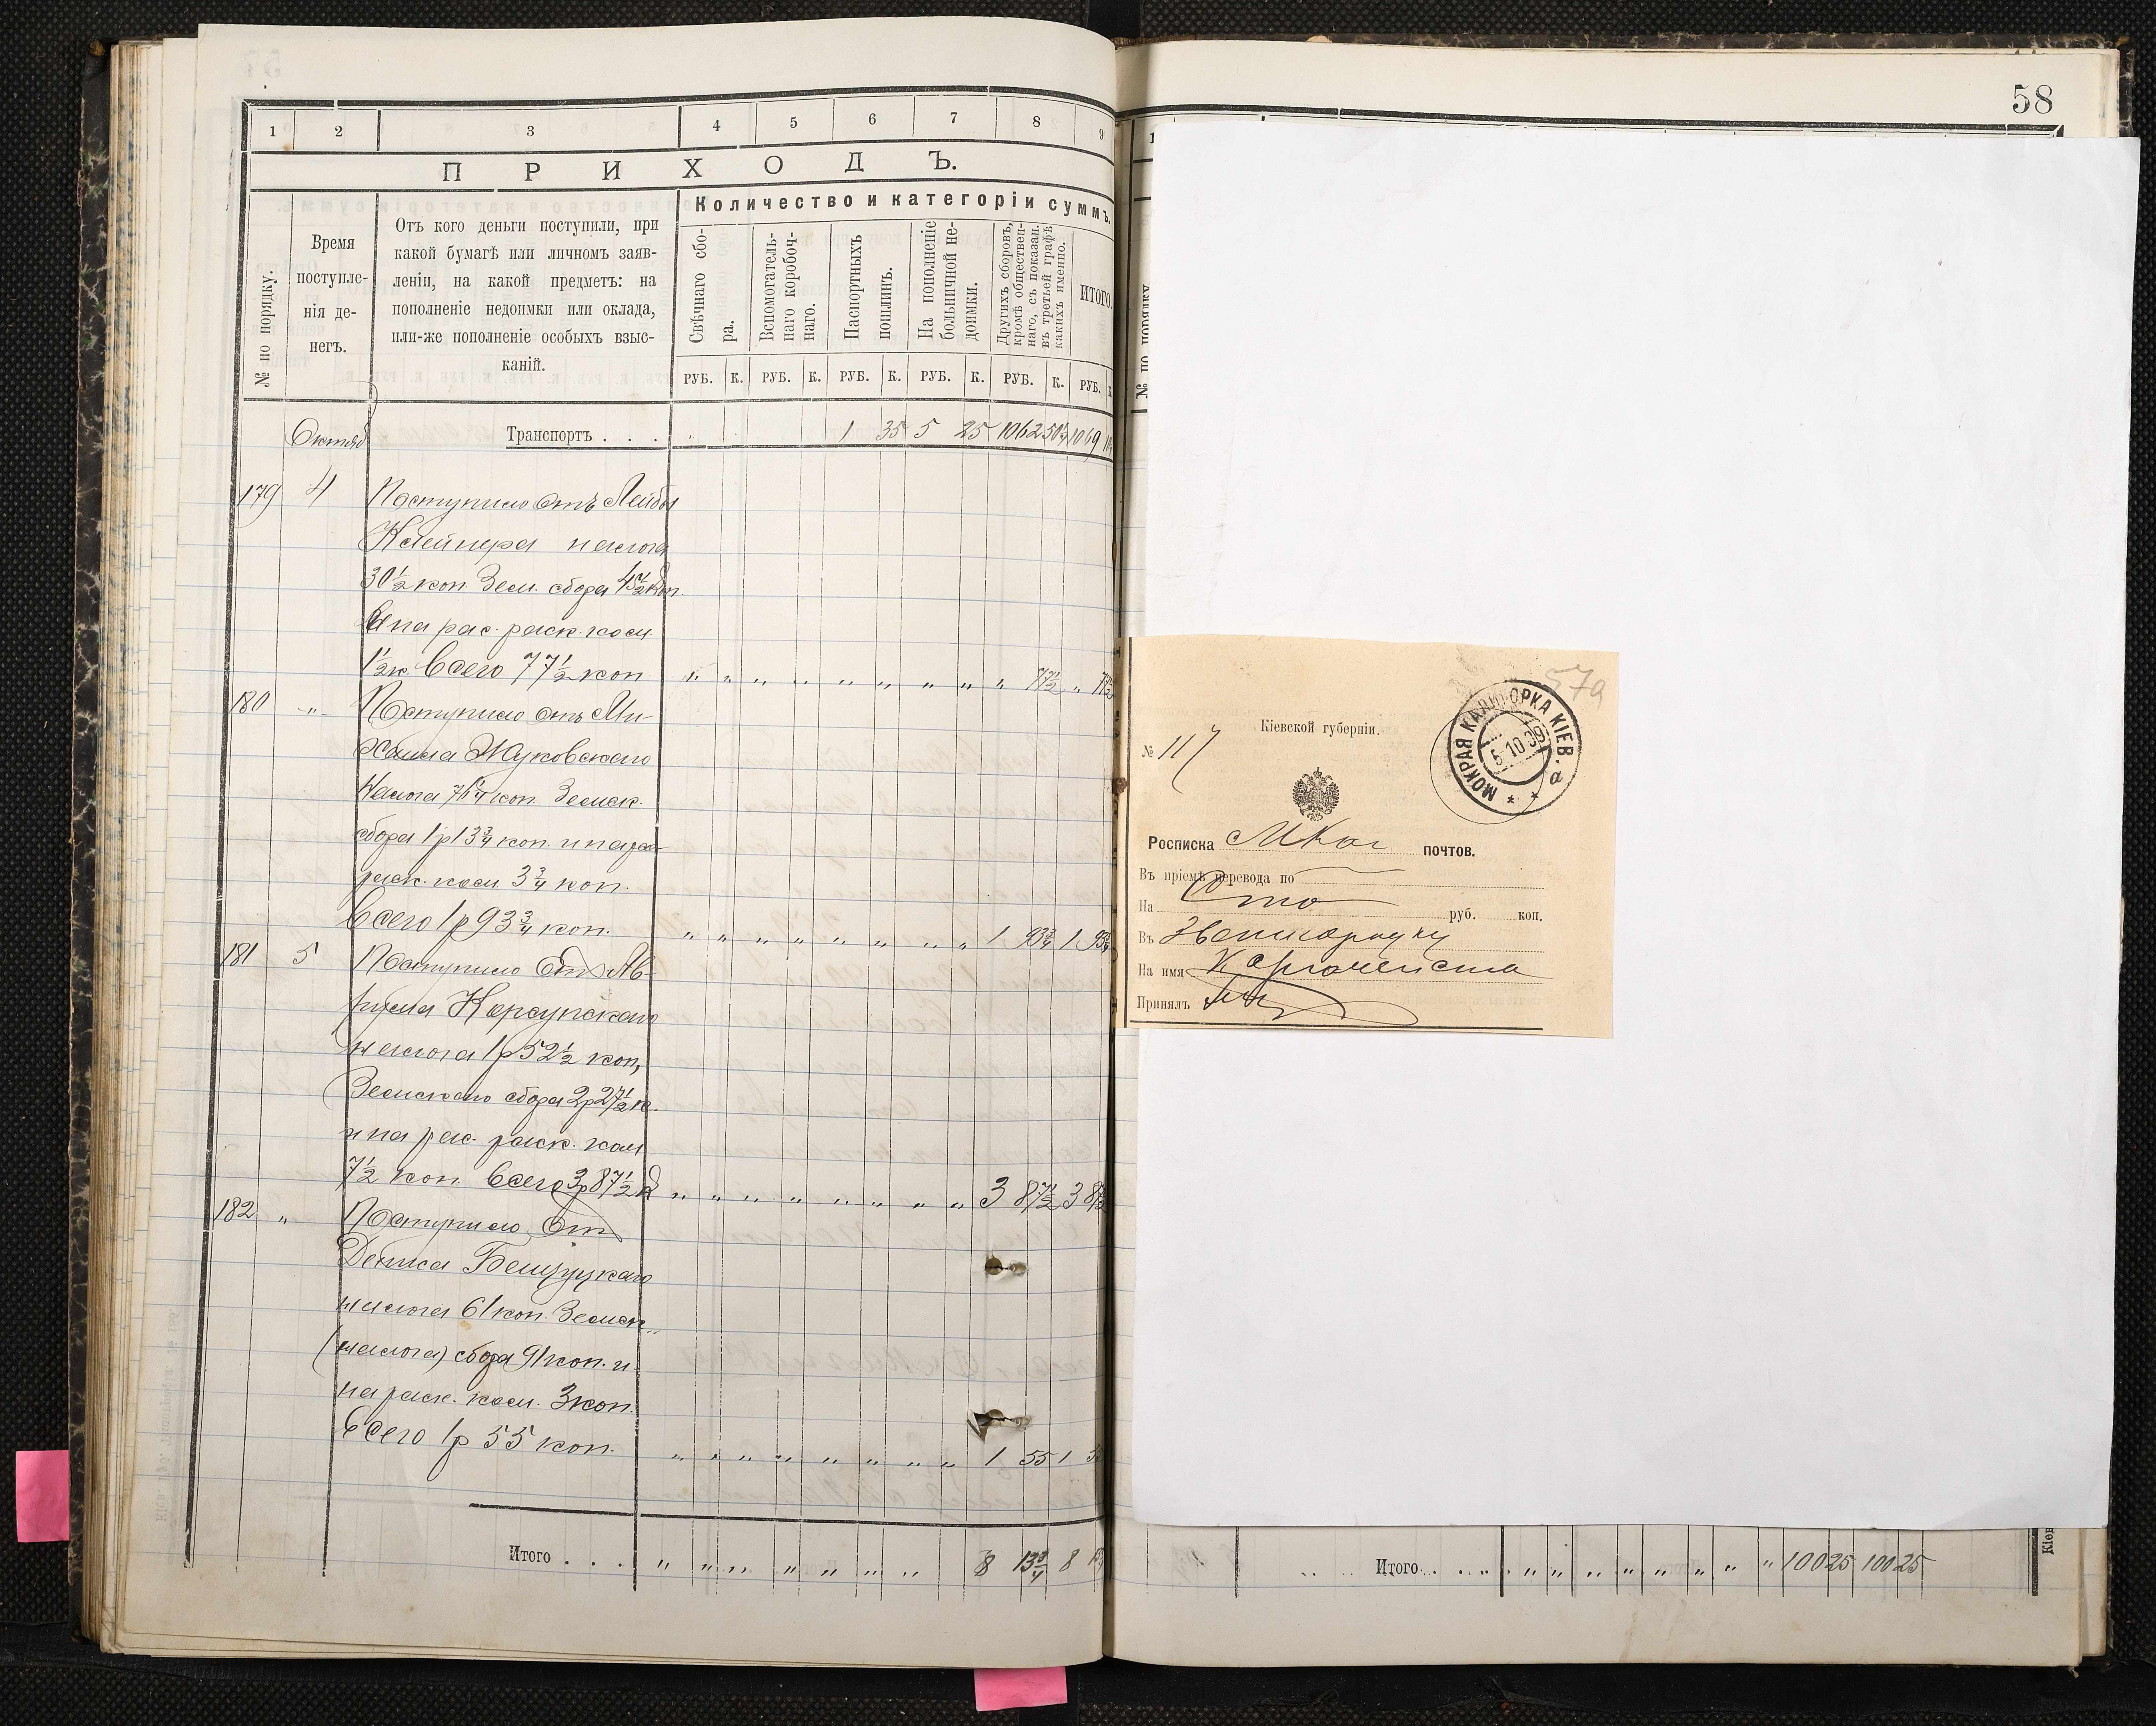 58
1 2 3 4 5 6 7 8 9
ПРИХОДЪ.
№ по порядку.
Время
поступле-
нія де-
негъ.
Отъ кого деньги поступили, при
какой бумагѣ или личномъ заяв-
леніи, на какой предметъ: на
пополненіе недоимки или оклада,
или-же пополненіе особыхъ взыс-
каній.
Количество и категоріи суммъ.
Свѣчнаго сбо-
ра.
Вспомогатель-
наго коробоч-
наго.
Паспортныхъ
пошлинъ.
На пополненіе
больничной не-
доимки.
Другихъ сборовъ,
кромѣ обществен-
наго, съ показан.
въ третьей графѣ
какихъ именно.
ИТОГО.
РУБ. К. РУБ. К. РУБ. К. РУБ. К. РУБ. К. РУБ.
Октяб Транспортъ . . . 1 35 5 25 1062 50 1069
179 4 Поступило отъ Лейбы
Клейнера налога
30½ коп. Зем. сбора 45½ коп
и на рас. раск. ком.
1½ к. всего 77½ коп " " " " " " " " " 77½ " 77½
180 " Поступило отъ Ми-
хаила Жуковскаго
налога 76¼ коп. Земск.
сбора 1 р 13¾ коп. и на рас
раск. ком 3¾ коп.
всего 1 р 93¾ коп. " " " " " " " " 1 93¾ 1 93¾
181 5 Поступило От Ав-
рума Корсунскаго
налога 1 р 52½ коп,
Земскаго сбора 2 р 27½ к.
и на рас. раск. ком
7½ коп всего 3 р 87½ к " " " " " " " " 3 87½ 3 87½
182 " Поступило От
налога 61 коп. Земск
(налога) сбора 91 коп. и
на раск. ком. 3 коп.
всего 1 р 55 коп. " " " " " " " " 1 55 1 55
Итого . . . " " " " " " " 8 13¾ 8
№ по порядку
Кіевской губерніи.
57а
№ 117
МОКРАЯ КАЛИГОРКА КІЕВ.
5 10 09
а
Росписка М Кал почтов.
Въ пріемѣ перевода по
На Сто руб. коп.
Въ Звенигородку
На имя Казначейства
Принялъ
Итого . . . " " " " " " " " 100 25 100 25